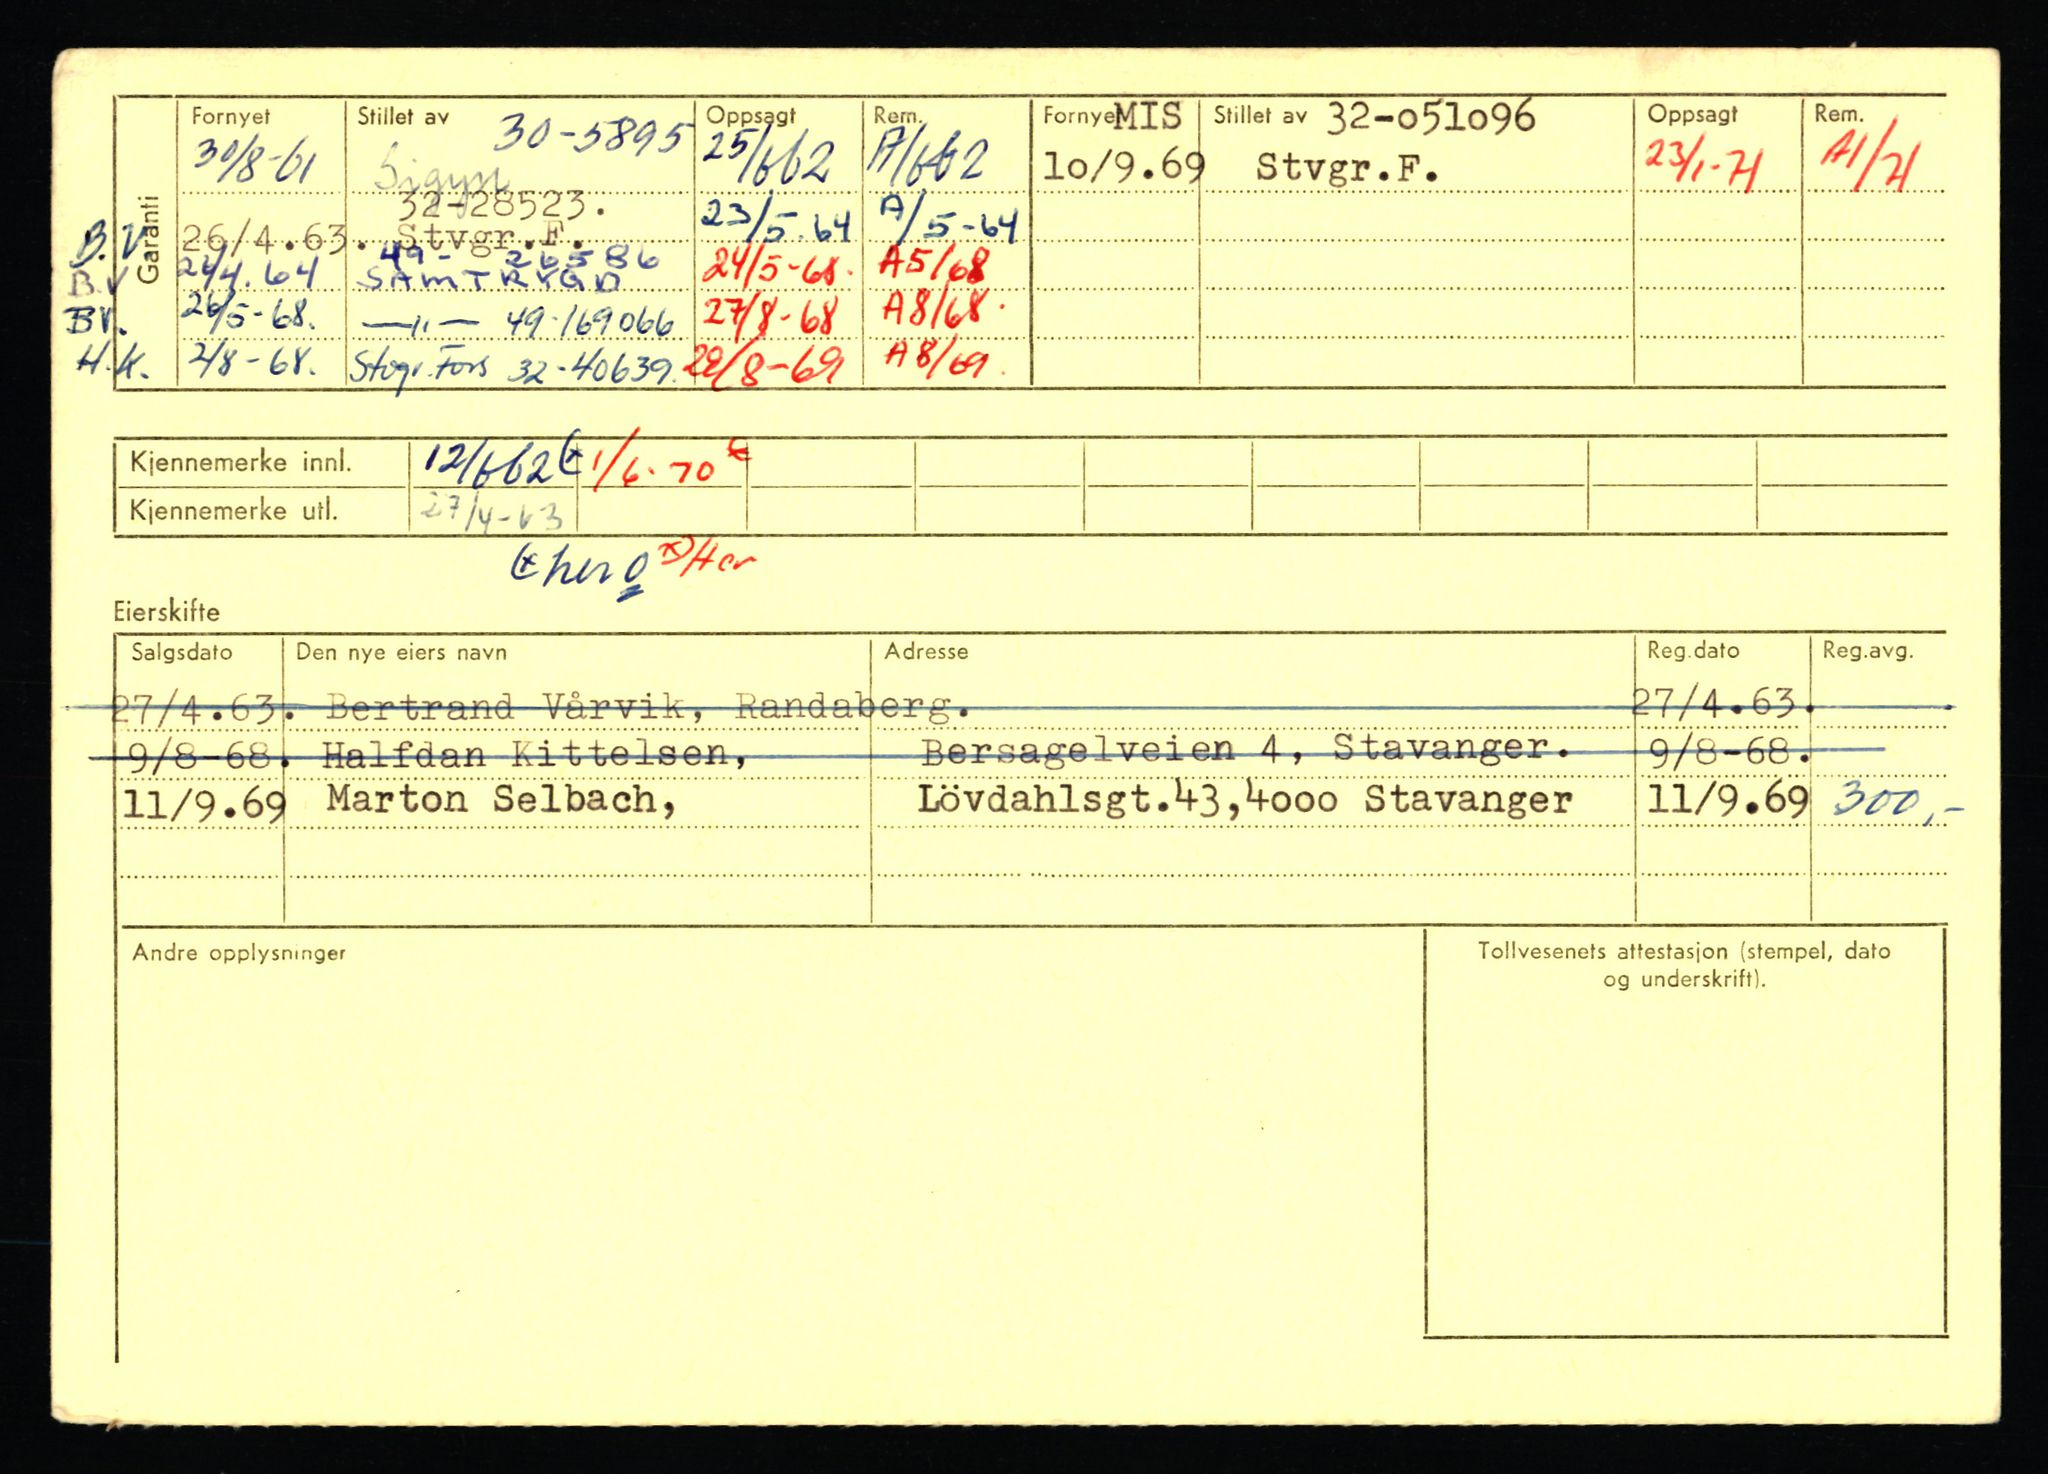 Garanti
Fornyet Stillet av Oppsagt Rem. Fornyet MIS Stillet av 32-051096 Oppsagt Rem.
30/8-61 Sigyn 30-5895 25/6 62 A/6 62 10/9.69 Stvgr.F. 23/1-71 A1/71
32-28523. 23/5.64 A/5-64
B.V 26/4.63. Stvgr.F.
49- 26586
B.V 24/4.64 SAMTRYGD 24/5-68. A5/68
BV. 26/5-68. —"— 49-169066 27/8-68 A8/68.
H.K. 2/8-68. Stvgr. Fors 32-40639. 22/8-69 A8/69.
Kjennemerke innl. 12/6 62 (x 1/6-70 x
Kjennemerke utl. 27/4-63
(x her O x) Her
Eierskifte
Salgsdato Den nye eiers navn Adresse Reg.dato Reg.avg.
27/4.63. Bertrand Vårvik, Randaberg. 27/4.63.
9/8-68. Halfdan Kittelsen, Bersagelveien 4, Stavanger. 9/8-68.
11/9.69 Marton Selbach, Lövdahlsgt.43,4000 Stavanger 11/9.69 300,-
Andre opplysninger
Tollvesenets attestasjon (stempel, dato
og underskrift).